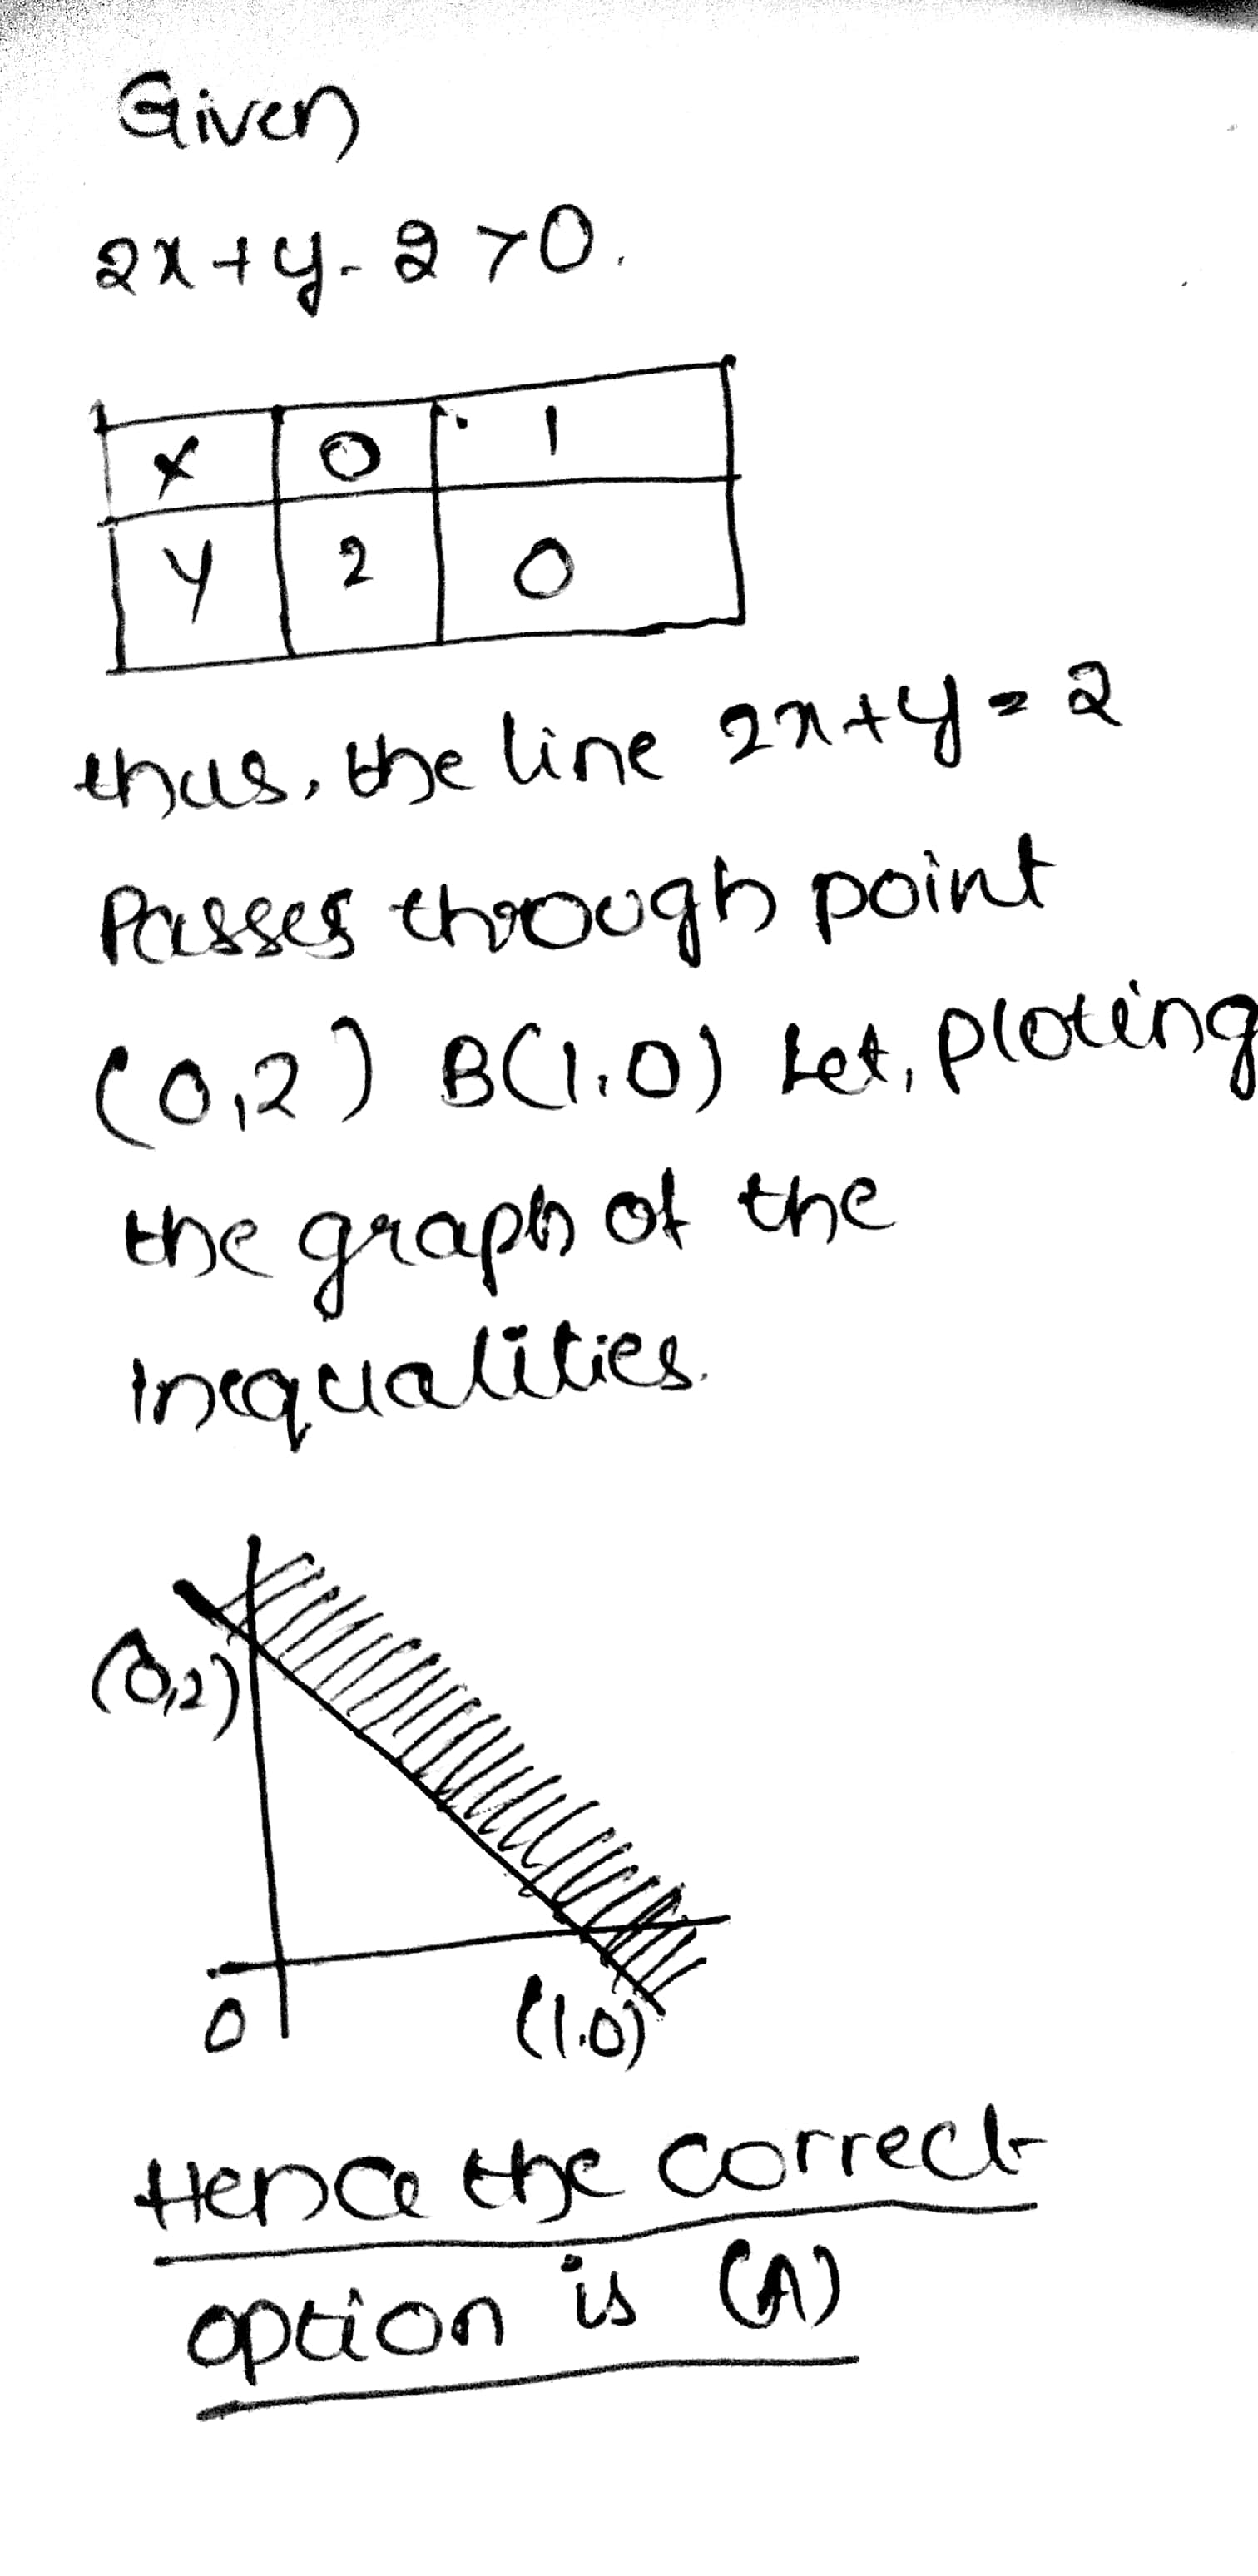 Given
2x+y-2>0.
x 0 1
y 2 0
thus, the line 2x+y=2
Passes through point
(0,2) B(1,0) Let, ploting
the graph of the
inequalities.
(0,2)
0 (1,0)
Hence the correct
option is (A)